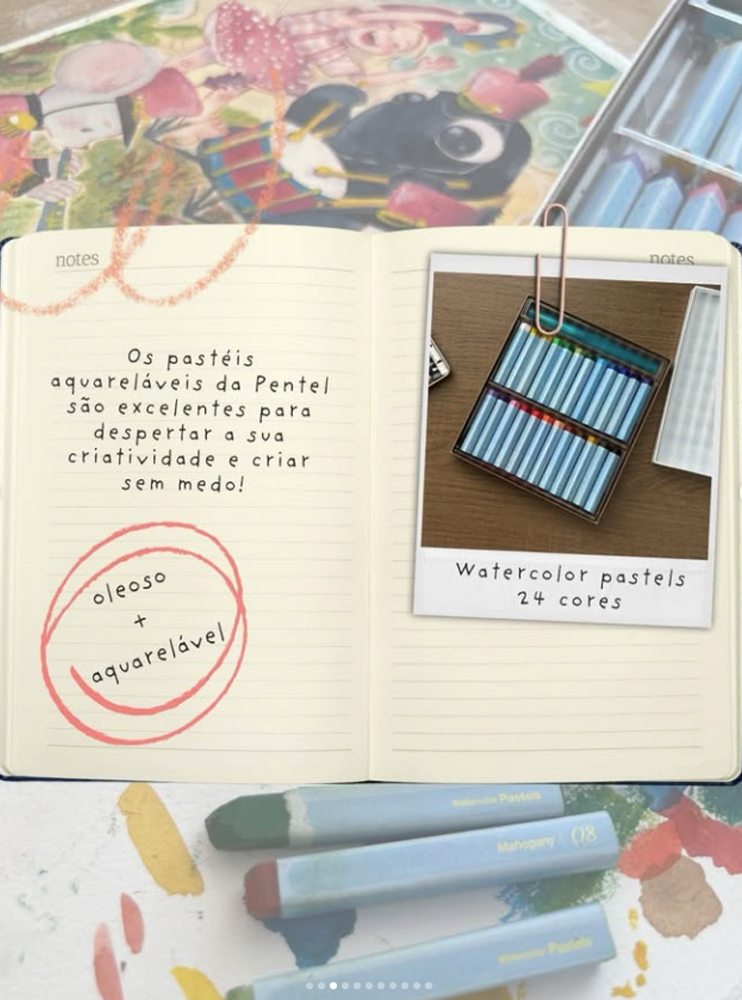 notes
Os pastéis
aquareláveis da Pentel
são excelentes para
despertar a sua
criatividade e criar
sem medo!
oleoso
+
aquarelável
notes
Watercolor pastels
24 cores
Watercolor Pastels
Mahogany 08
Watercolor Pastels